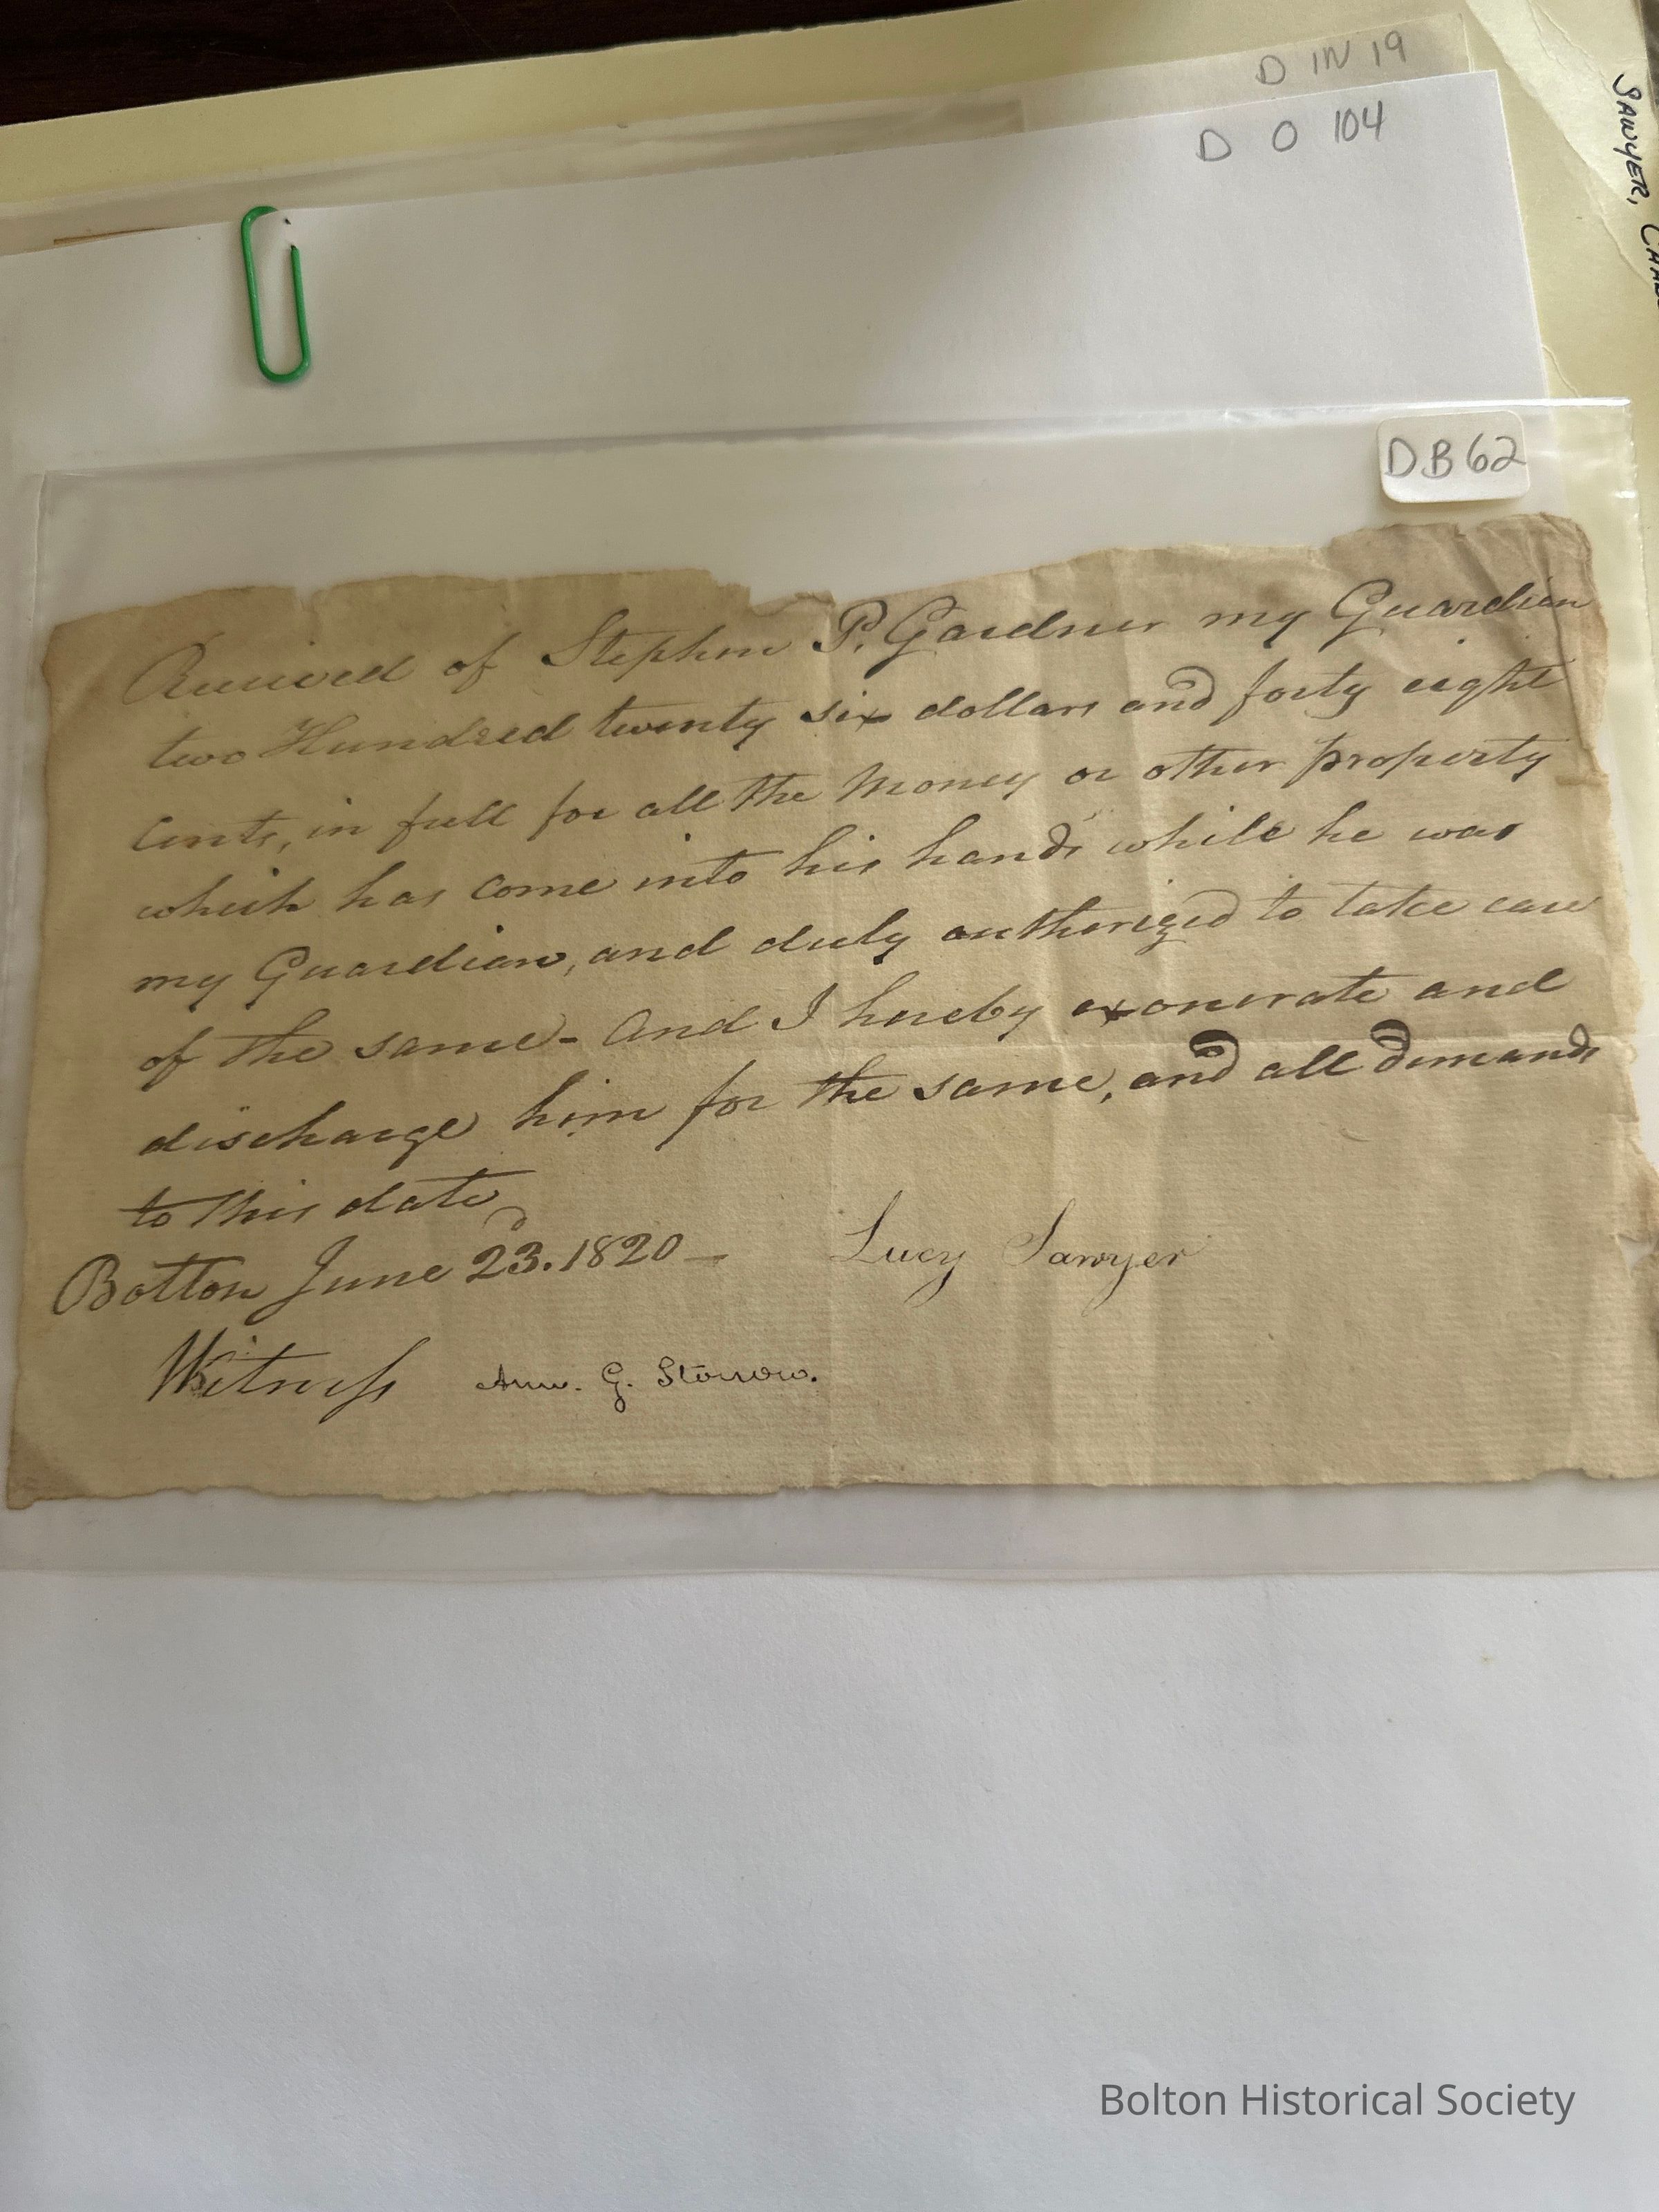 D IN 19
D O 104
SAWYER,
DB62
Received of Stephen P. Gardner my Guardian
two Hundred twenty six dollars and forty eight
Cents, in full for all the Money or other property
which has come into his hands while he was
my Guardian, and duly authorized to take care
of the same - And I hereby exonerate and
discharge him for the same, and all demands
to this date
Bolton June 23d. 1820 - Lucy Sawyer
Witness Ann. G. Storrow.
Bolton Historical Society